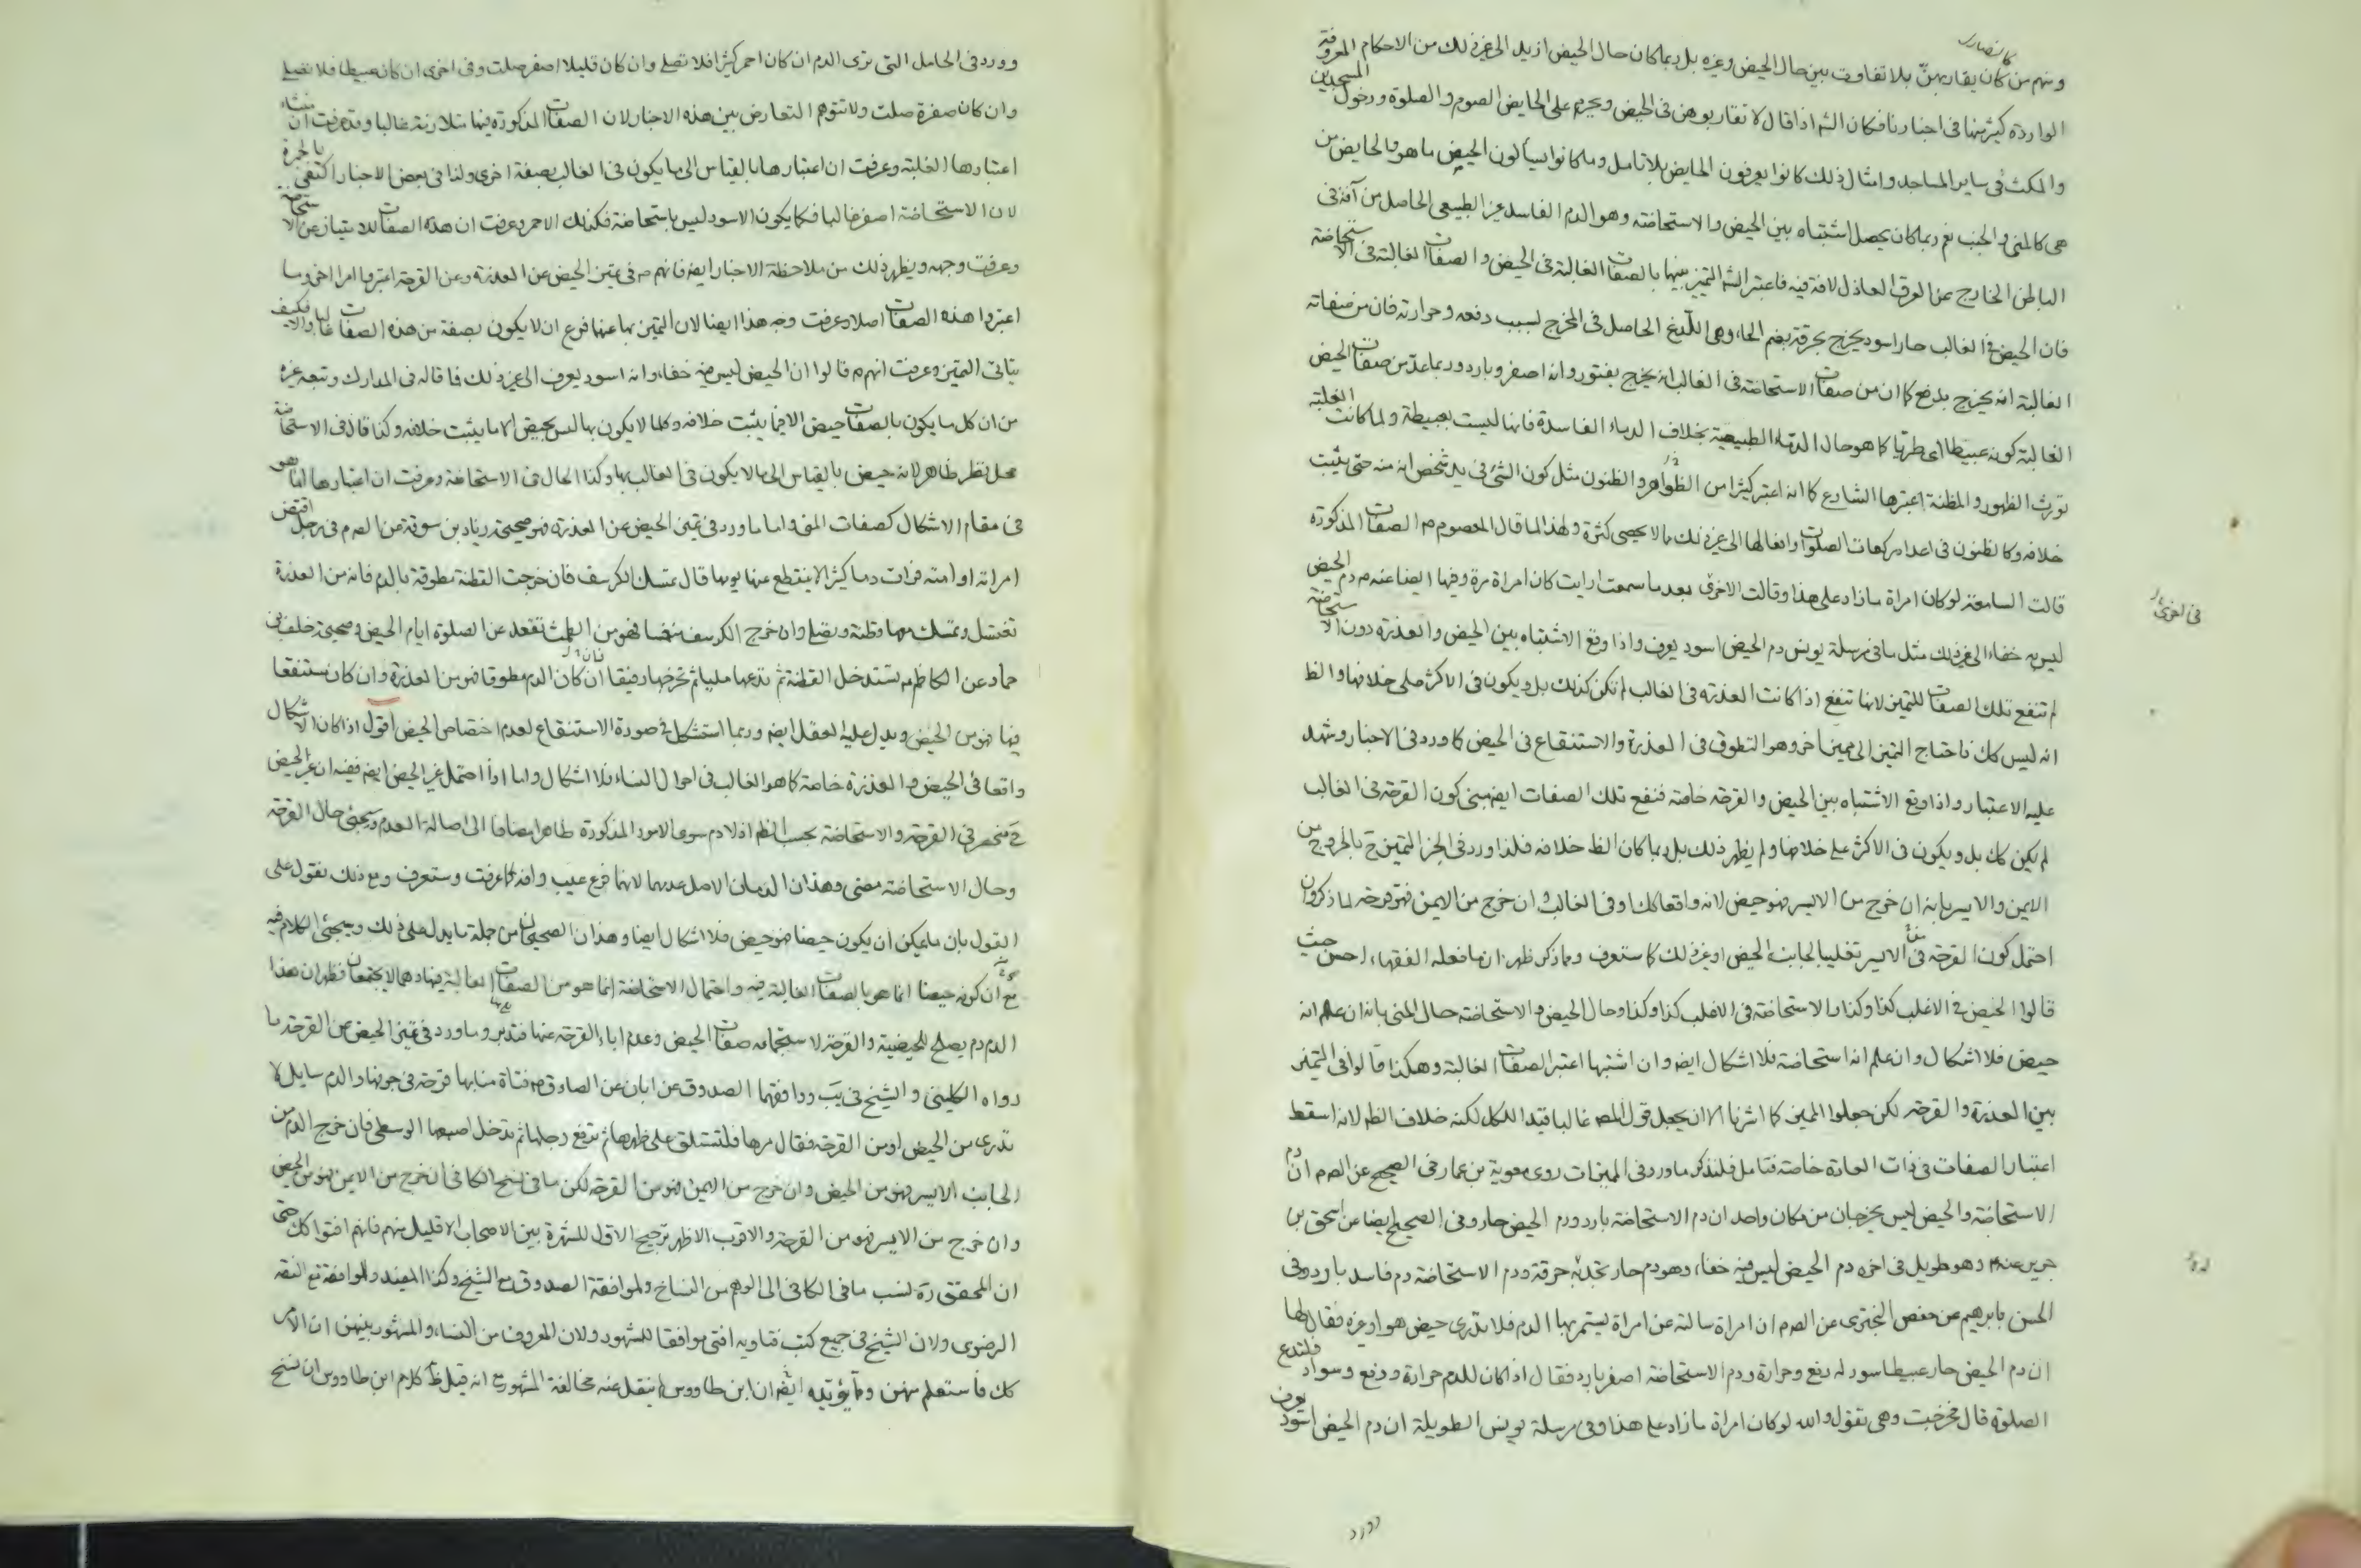 كالنصارى
ومنهم من كان يقاربهن بلا تفاوت بين حال الحيض وغيره بل ربما كان حال الحيض ازيد الى غير ذلك من الاحكام المعروفة
الواردة كثير منها في اخبارنا فكان الشم اذا قال لا تقاربوهن في الحيض ويحرم على الحايض الصوم والصلوة ودخول المسجدين
والمكث في ساير المساجد وامثال ذلك كانوا يعرفون الحايض بلا تامل وما كانوا يسألون الحيض ما هو والحايض من
هي كالمني والجنب نعم ربما كان يحصل اشتباه بين الحيض والاستحاضة وهو الدم الفاسد غير الطبيعي الحاصل من آفة في
الباطن الخارج عن العرق العاذل لافة فيه فاعتبر الشم التميز بينهما بالصفات الغالبة في الحيض والصفات الغالبة في الاستحاضة
فان الحيض في الغالب حار اسود يخرج بحرقة بضم الحاء وهي اللذع الحاصل في المخرج لسبب دفعه وحرارته فان من صفاته
الغالبة انه يخرج بدفع كما ان من صفات الاستحاضة في الغالب انه يخرج بفتور وانه اصفر وبارد وربما عد من صفات الحيض
الغالبة كونه عبيطا اي طريا كما هو حال الدماء الطبيعية بخلاف الدماء الفاسدة فانها ليست بعبيطة ولما كانت الغلبة
تورث الظهور والمظنة اعتبرها الشارع كما انه اعتبر كثيرا من الظواهر والظنون مثل كون الشئ في يد شخص انه منه حتى يثبت
خلافه وكالظنون في اعداد ركعات الصلوات وافعالها الى غير ذلك مما لا يحصى كثرة ولهذا لما قال المعصوم م الصفات المذكورة
قالت السامعة لو كان امراة ما زاد على هذا وقالت الاخرى بعد ما سمعت ارايت كان امراة مرة وفيها ايضا عنه م دم الحيض
ليس به خفاء الى غير ذلك مثل ما في مرسلة يونس دم الحيض اسود يعرف واذا وقع الاشتباه بين الحيض والعذرة دون الاستحاضة
لم تنفع تلك الصفات للتميز لانها تنفع اذا كانت العذرة في الغالب لم تكن كذلك بل ويكون في الاكثر على خلافها والظ
انه ليس كك فاحتاج التميز الى مميز اخر وهو التطوق في العذرة والاستنقاع في الحيض كما ورد في الاخبار وشهد
عليه الاعتبار واذا وقع الاشتباه بين الحيض والقرحة خاصة فنفع تلك الصفات ايضا مبني كون القرحة في الغالب
لم يكن كك بل ويكون في الاكثر على خلافها ولم يظهر ذلك بل ربما كان الظ خلافه فلذا ورد في الخبر التميز ح بالخروج من
الايمن والايسر بانه ان خرج من الايسر فهو حيض لانه واقعا كك او في الغالب وان خرج من الايمن فهو قرحة لما ذكر وان
احتمل كون القرحة في الايسر تغليبا لجانب الحيض او غير ذلك كما ستعرف ومما ذكر ظهر ان ما فعله الفقهاء احسن حيث
قالوا الحيض في الاغلب كذا وكذا والاستحاضة في الاغلب كذا وكذا وحال الحيض والاستحاضة حال المني بانه ان علم انه
حيض فلا اشكال وان علم انه استحاضة فلا اشكال ايضا وان اشتبها اعتبر الصفات الغالبة وهكذا قالوا في التميز
بين العذرة والقرحة لكن جعلوا المميز كما اشرنا الا ان يجعل قول المص غالبا قيدا للكل لكنه خلاف الظ لانه اسقط
اعتبار الصفات في ذات العادة خاصة فتامل فلنذكر ما ورد في المميزات روى معوية بن عمار في الصحيح عن الص م ان دم
الاستحاضة والحيض ليس يخرجان من مكان واحد ان دم الاستحاضة بارد ودم الحيض حار وفي الصحيح ايضا عن اسحق بن
جرير عنه م وهو طويل في اخره دم الحيض ليس فيه خفاء وهو دم حار تجد به حرقة ودم الاستحاضة دم فاسد بارد وفي
الحسن بابرهيم عن حفص البختري عن الص م ان امراة سالته عن امراة يستمر بها الدم فلا تدري حيض هو او غيره فقال لها
ان دم الحيض حار عبيط اسود له دفع وحرارة ودم الاستحاضة اصفر بارد فقال اذا كان للدم حرارة ودفع وسواد فلتدع
الصلوة قال فخرجت وهي تقول والله لو كان امراة ما زاد على هذا وفي مرسلة يونس الطويلة ان دم الحيض اسود يعرف
وورد
وورد في الحامل التي ترى الدم ان كان احمر كثيرا فلا تصلي وان كان قليلا اصفر صلت وفي اخرى ان كان عبيطا فلا تصلي
وان كان صفرة صلت ولا تتوهم التعارض بين هذه الاخبار لان الصفات المذكورة فيها متلازمة غالبا وقد عرفت ان منشاء
اعتبارها الغلبة وعرفت ان اعتبارها بالقياس الى ما يكون في الغالب بصفة اخرى ولذا في بعض الاخبار اكتفي بالحمرة
لان الاستحاضة اصفر غالبا فكما يكون الاسود ليس باستحاضة فكذلك الاحمر وعرفت ان هذه الصفات للامتياز عن الاستحاضة
وعرفت وجهه ويظهر ذلك من ملاحظة الاخبار ايضا فانهم م في تميز الحيض عن العذرة وعن القرحة اعتبروا امرا اخر وما
اعتبروا هذه الصفات اصلا وعرفت وجه هذا ايضا لان التميز بها عنهما فرع ان لا يكون بصفة من هذه الصفات غالبا والا فكيف
يتاتى التميز وعرفت انهم م قالوا ان الحيض ليس فيه خفاء وانه اسود يعرف الى غير ذلك فما قاله في المدارك وتبعه غيره
من ان كل ما يكون بالصفات حيض الا فيما يثبت خلافه وكلما لا يكون بها ليس بحيض الا ما يثبت خلافه وكذا قال في الاستحاضة
محل نظر ظاهر لانه حيض بالقياس الى ما لا يكون في الغالب بها وكذا الحال في الاستحاضة وعرفت ان اعتبارها انما هو
في مقام الاشكال كصفات المني واما ما ورد في تميز الحيض عن العذرة فهو صحيحة زياد بن سوقة عن الص م في رجل اقتض
امراته او امته فرات دما كثيرا لا ينقطع عنها يومها قال تمسك الكرسف فان خرجت القطنة مطوقة بالدم فانه من العذرة
تغتسل وتمسك معها قطنة وتصلي وان خرج الكرسف منغمسا فهو من الطمث تقعد عن الصلوة ايام الحيض وصحيحة خلف بن
حماد عن الكاظم م تستدخل القطنة ثم تدعها مليا ثم تخرجها رفيقا فان كان الدم مطوقا فهو من العذرة وان كان مستنقعا
فيها فهو من الحيض ويدل عليه العقل ايضا وربما استشكل في صورة الاستنقاع لعدم اختصاص الحيض اقول اذا كان الاشكال
واقعا في الحيض والعذرة خاصة كما هو الغالب في احوال النساء فلا اشكال واما اذا احتمل غير الحيض ايضا ففيه ان غير الحيض
ح منحصر في القرحة والاستحاضة بحسب الظ اذ لا دم سوى الامور المذكورة ظاهرا مضافا الى اصالة العدم وسيجئ حال القرحة
وحال الاستحاضة مضى وهذان الدمان الاصل عدمهما لانهما فرع عيب وافة كما عرفت وستعرف ومع ذلك نقول على
القول بان ما يمكن ان يكون حيضا فهو حيض فلا اشكال ايضا وهذان الصحيحان من جملة ما يدل على ذلك وسيجئ الكلام فيه
مع ان كونه حيضا انما هو بالصفات الغالبة فيه واحتمال الاستحاضة انما هو من الصفات الغالبة فيها وهما لا يجتمعان فظهر ان هذا
الدم دم يصلح للحيضية والقرحة لاستجماعه صفات الحيض وعدم اباء القرحة عنها فتدبر وما ورد في تميز الحيض عن القرحة ما
رواه الكليني والشيخ في يب ووافقهما الصدوق عن ابان عن الصادق م فتاة منا بها قرحة في جوفها والدم سايل لا
تدري من الحيض او من القرحة فقال مرها فلتستلق على ظهرها ثم ترفع رجليها ثم تدخل اصبعها الوسطى فان خرج الدم من
الجانب الايسر فهو من الحيض وان خرج من الايمن فهو من القرحة لكن ما في نسخ الكافي ان خرج من الايمن فهو من الحيض
وان خرج من الايسر فهو من القرحة والاقرب الاظهر ترجيح الاول للشهرة بين الاصحاب الا قليل منهم فانهم افتوا كك حتى
ان المحقق ره نسب ما في الكافي الى الوهم من النساخ ولموافقة الصدوق مع الشيخ وكذا المفيد ولموافقة مع الفقه
الرضوي ولان الشيخ في جميع كتب فتاويه افتى موافقا للمشهور ولان المعروف من النساء والمشهور بينهن ان الامر
كك فاستعلم منهن ومما يؤيده ايضا ان ابن طاووس لم ينقل عنه مخالفة المشهور مع انه قيل ظ كلام ابن طاووس ان نسخ